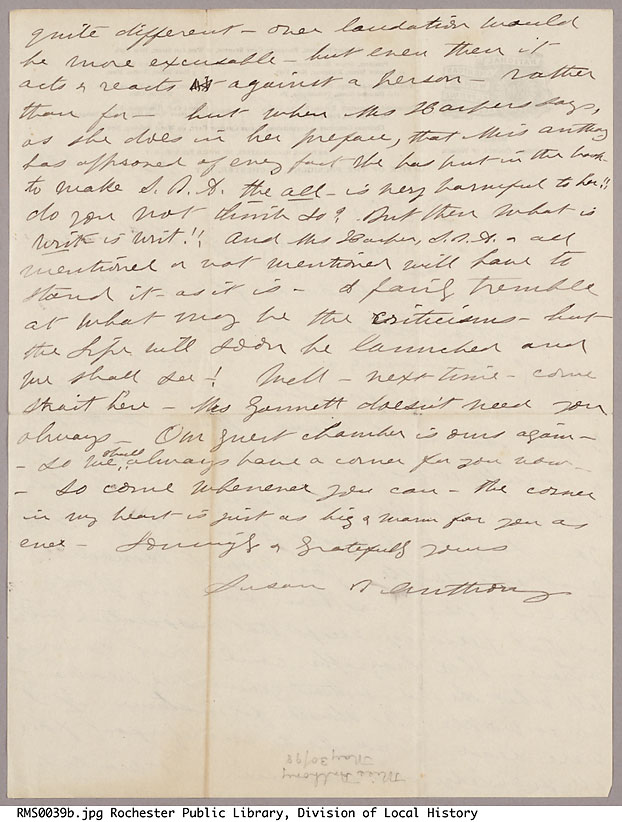 quite different - over laudation would
be more excusable - but even then it
acts & reacts against a person - rather
than for - but when Mrs Harper says,
as she does in her preface, that Miss Anthony
has approved of every fact she has put in the book -
to make S. B. A. the all - is very harmful to her!!
do you not think so? But then what is
writ is writ!! And Mrs Harper, S.B.A. & all
mentioned or not mentioned will have to
stand it - as it is - I fairly tremble
at what may be the criticisms - but
the Life will soon be launched and
we shall see! Well - next time - come
strait here - Mrs Gannett doesn't need you
always - Our guest chamber is ours again -
- so we shall always have a corner for you now -
- So come whenever you can - the corner
in my heart is just as big & warm for you as
ever - Lovingly & gratefully yours
Susan B Anthony
Miss Anthony
May 30/98
RMS0039b.jpg Rochester Public Library, Division of Local History